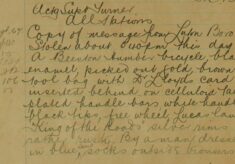 Actg Supt Turner.
All Stations
Copy of message from Luton Boro
Stolen about 4.0 pm this day
A Brenton number bicycle, bla
enamel, picked out gold, brown
tool bag with Dr Lloyd card
inserted behind on celluloid tab
plated handle bars white hand
black tips, free wheel, Lucas lam
King of the Road, silver rims
rather rusty. By a man dressed
in blue, socks outside trousers